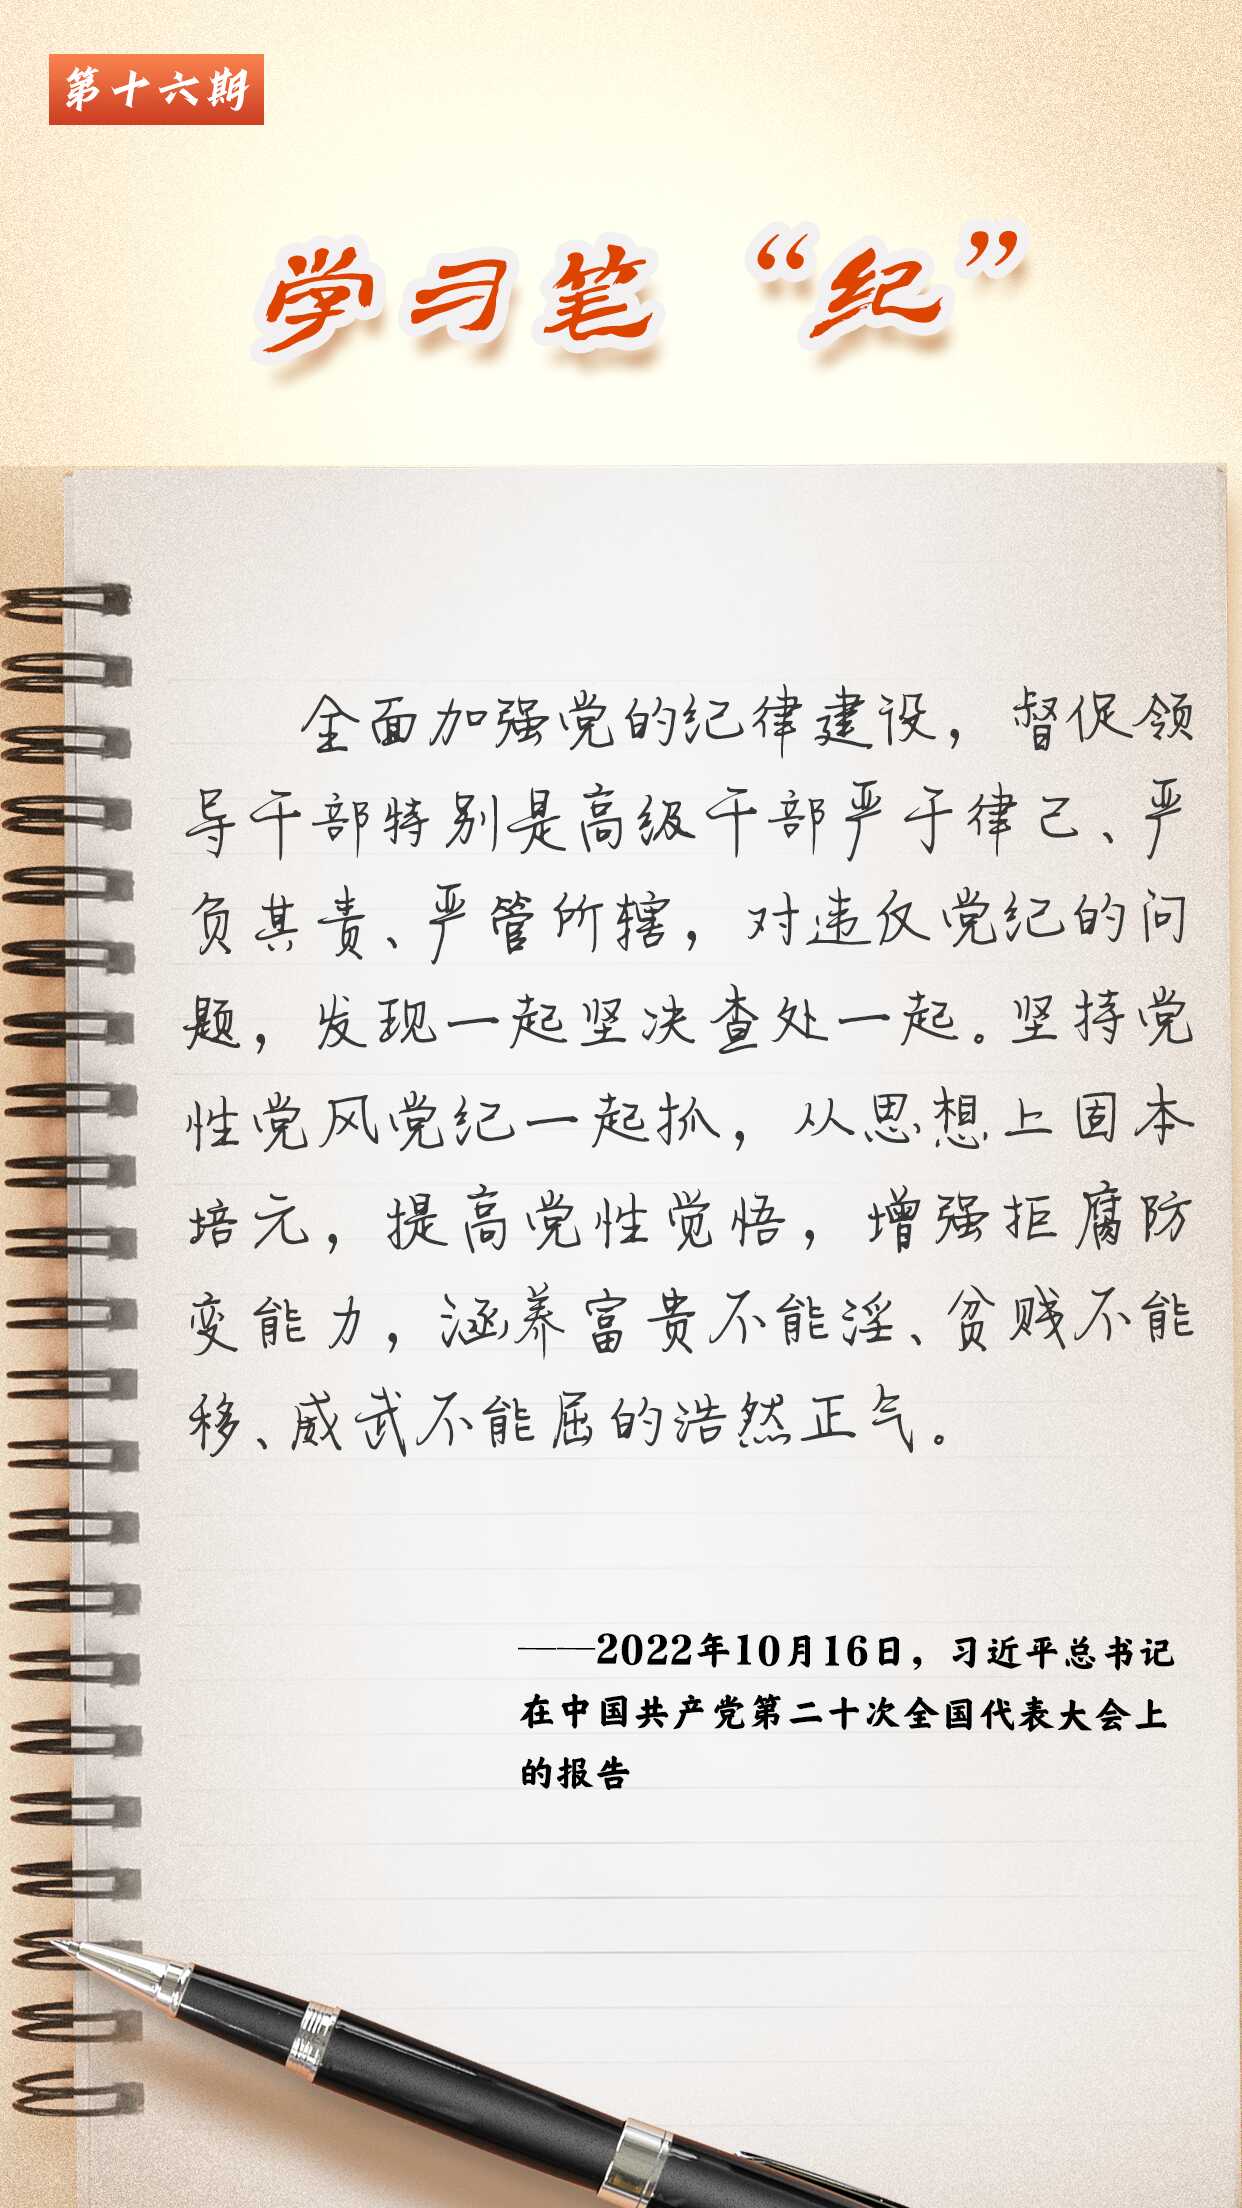 第十六期
学习笔“纪”
全面加强党的纪律建设，督促领
导干部特别是高级干部严于律己、严
负其责、严管所辖，对违反党纪的问
题，发现一起坚决查处一起。坚持党
性党风党纪一起抓，从思想上固本
培元，提高党性觉悟，增强拒腐防
变能力，涵养富贵不能淫、贫贱不能
移、威武不能屈的浩然正气。
——2022年10月16日，习近平总书记
在中国共产党第二十次全国代表大会上
的报告